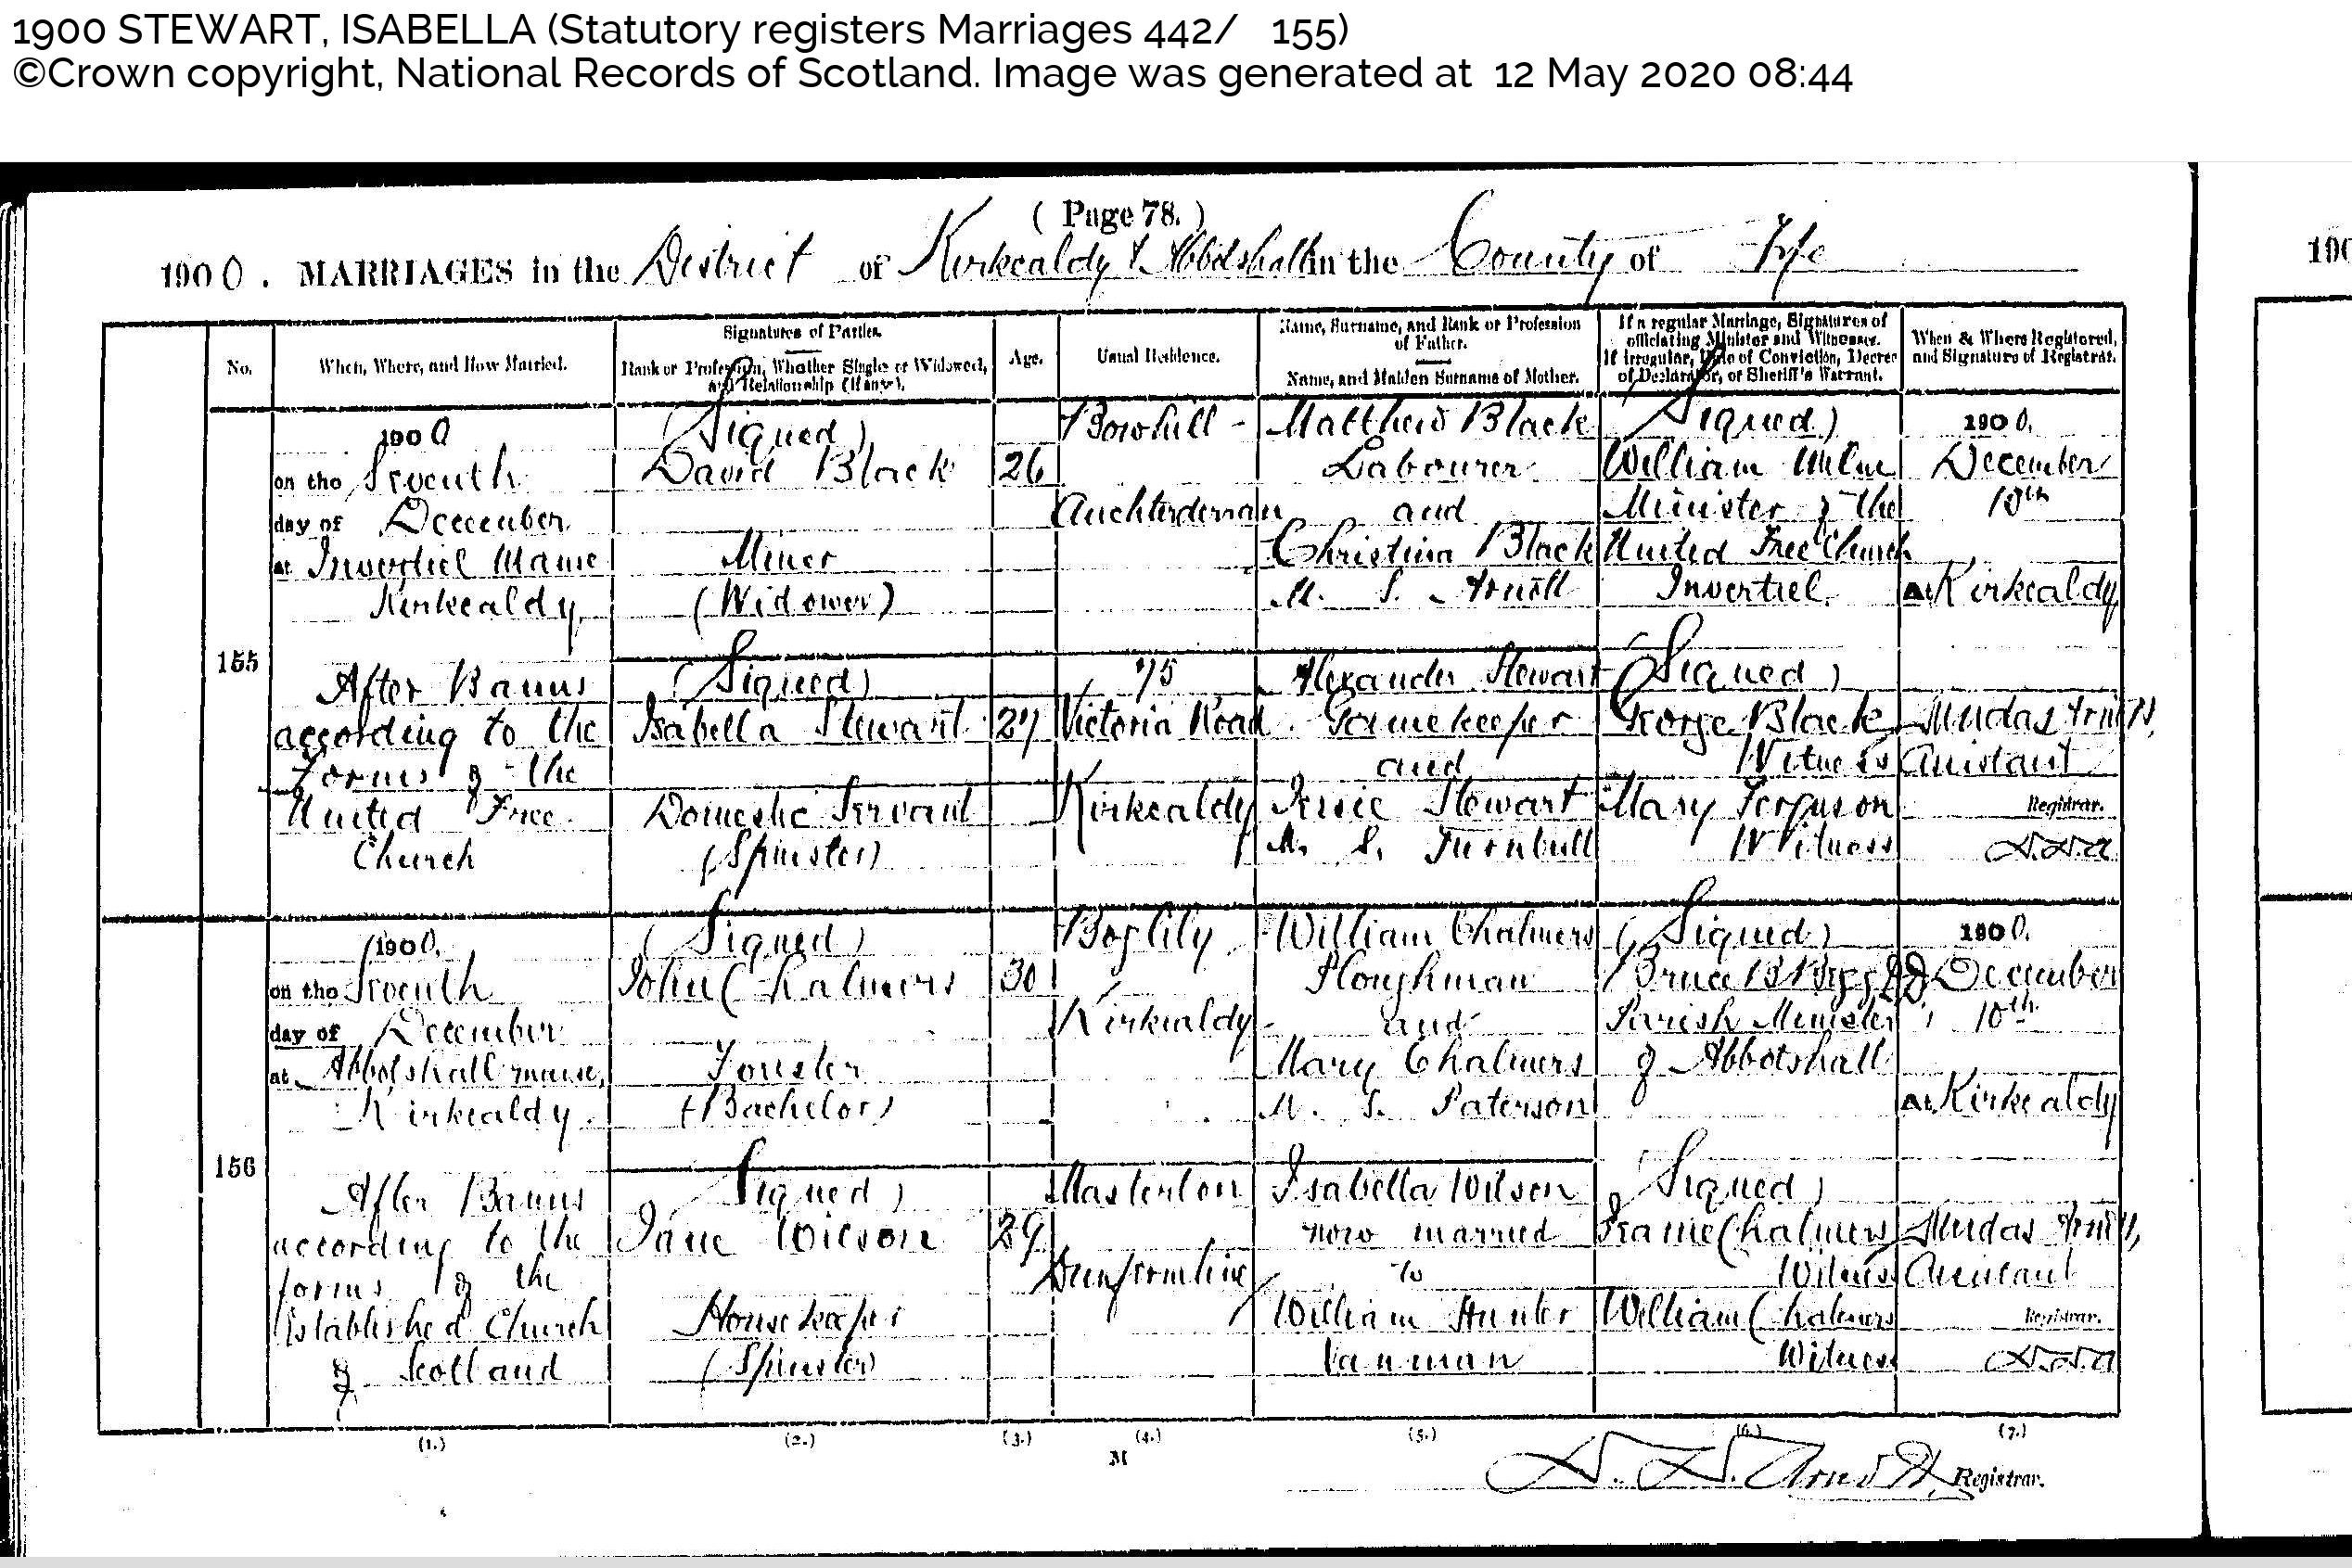 1900 STEWART, ISABELLA (Statutory registers Marriages 442/ 155)
©Crown copyright, National Records of Scotland. Image was generated at 12 May 2020 08:44
( Page 78. )
1900. MARRIAGES in the District of Kirkcaldy & Abbotshall in the County of Fife
190
No.
When, Where, and How Married.
Signatures of Parties.
Rank or Profession, Whether Single or Widowed,
and Relationship (if any).
Age.
Usual Residence.
Name, Surname, and Rank or Profession
of Father.
Name, and Maiden Surname of Mother.
If a regular Marriage, Signatures of
officiating Minister and Witnesses.
If irregular, Date of Conviction, Decree
of Declarator, or Sheriff's Warrant.
When & Where Registered,
and Signature of Registrar.
155
1900
on the Seventh
day of December
at Invertiel Manse
Kirkcaldy,
After Banns
according to the
Forms of the
United Free
Church
(Signed)
David Black
Miner
(Widower)
(Signed)
Isabella Stewart
Domestic Servant
(Spinster)
26
27
Bowhill
Auchterderran
75
Victoria Road
Kirkcaldy
Matthew Black
Labourer
and
Christina Black
M. S.
Alexander Stewart
Gamekeeper
and
Jessie Stewart
M. S. Turnbull
(Signed)
William Milne
Minister of the
United Free Church
Invertiel.
(Signed)
George Black
Witness
Mary Ferguson
Witness
1900.
December
10th
At Kirkcaldy
Assistant
Registrar.
156
1900.
on the Seventh
day of December
at Abbotshall manse,
Kirkcaldy.
After Banns
according to the
forms of the
Established Church
of Scotland
(Signed)
John Chalmers
(Bachelor)
(Signed)
Jane Wilson
Housekeeper
(Spinster)
30
29
Boglily
Kirkcaldy
Masterton
Dunfermline
William Chalmers
Ploughman
and
Mary Chalmers
M. S. Paterson
Isabella Wilson
now married
to
William Hunter
Vanman
(Signed)
Bruce B
Parish Minister
of Abbotshall
(Signed)
Chalmers
Witness
William Chalmers
Witness
1900.
December
10th
At Kirkcaldy
Assistant
Registrar.
(1.) (2.) (3.) (4.) (5.) (6.) (7.)
M
Registrar.